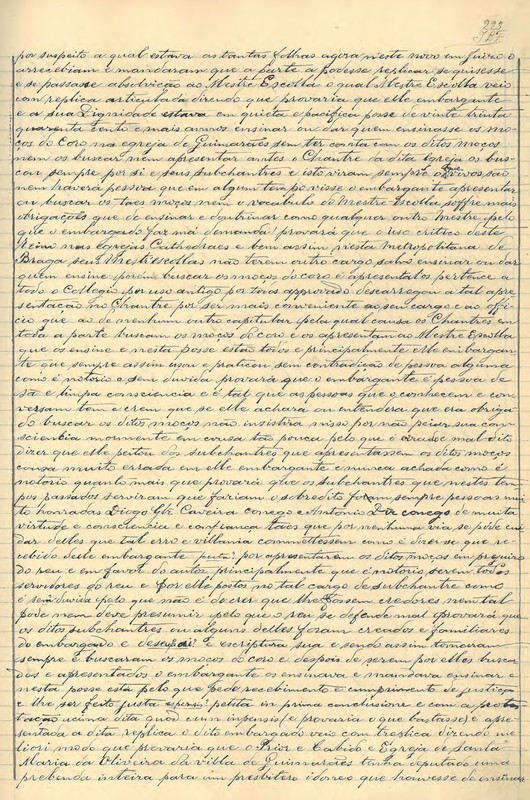 223
por suspeito a qual estava as tantas folhas agora neste novo em juizo o
arrecebiam e mandaram que a parte a podesse replicar se quisesse
e se passasse absolvição ao Mestre Escolla o qual Mestre Escolla veio
com replica articulada dizendo que provaria que elle embargante
e a sua Dignidade estava em quieta e pacifica posse de vinte trinta
quarenta cento e mais annos ensinar ou dar quem ensinasse os mo-
ços do Coro na egreja de Guimarães sem ter conta com os ditos moços
nem os buscar nem apresentar antes o Chantre da dita Egreja os bus-
cou sempre por si e seus subchantres e isto viram sempre os vivos são
nem haverá pessoa que em algum tempo visse o embargante apresentar
ou buscar os taes moços nem o vocabulo do Mestre Escolla soffre mais
obrigações que de ensinar e doutrinar como qualquer outro Mestre pelo
que o embargado faz má demanda provará que o uso critico deste
Reino nas egrejas Cathedraes e bem assim nesta Metropolitana de
Braga seus Mestrescollas não terem outro cargo salvo ensinar ou dar
quem ensine porém buscar os moços do coro e apresental-os pertence a
todo o Collegio por uso antigo por todos approvado descarregou a tal apre-
sentação no Chantre por ser mais conveniente ao seu cargo e ao offi-
cio que ao de nenhum outro capitular pela qual causa os Chantres em
toda a parte buscam os moços do coro e os apresentam ao Mestre Escolla
que os ensine e nesta posse estão todos e principalmente elle embargan-
te que sempre assim usou e praticou sem contradição de pessoa alguma
como é notorio e sem duvida provará que o embargante é pessoa de
sã e limpa consciencia e é tal que as pessoas que o conhecem e con-
versam tem e crem que se elle achara ou entendera que era obriga-
do buscar os ditos moços não insistira nisso por não pejar sua con-
sciencia mormente em cousa tão pouca pelo que é mal dito
dizer que elle peitou dos subchantres que apresentassem os ditos moços
cousa muito errada em elle embargante e nunca achada como é
notorio quanto mais que provará que os subchantres que nestes tem-
pos passados serviram que faziam o sobredito foram sempre pessoas mui
to honradas Diogo Glz Caveira conego e Antonio Diz conego de muita
virtude e consciencia e confiança taes que por nenhuma via se póde cui
dar delles que tal erro e villania commettessem como é dizer-se que re-
cebido delle embargante peita por apresentarem os ditos moços em prejuizo
do reu e em favor do autor principalmente que é notorio serem todos
servidores do reu e por elle postos no tal cargo de subchantre como
é sem duvida pelo que não é de crer que lhe fossem credores nem tal
póde nem deve presumir pelo que o reu se defende mal provará que
os ditos subchantres ou alguns delles foram creados e familiares
do embargado e escriptura sua e sendo assim tomaram
sempre e buscaram os moços do coro e despois de serem por elles busca
dos e apresentados o embargante os ensinava e mandava ensinar e
nesta posse está pelo que pede recebimento e cumprimento de justiça
e lhe ser feito justa petita in prima conclusione e com a protes
tação acima dita quod cum inpensis e provaria o que bastasse e apre
sentada a dita replica o dito embargado veio com treplica dizendo me
liori modo que provaria que o Prior e Cabido e Egreja de Santa
Maria da Oliveira da villa de Guimarães tenha deputado uma
prebenda inteira para um presbitero idoneo que houvesse de ensinar